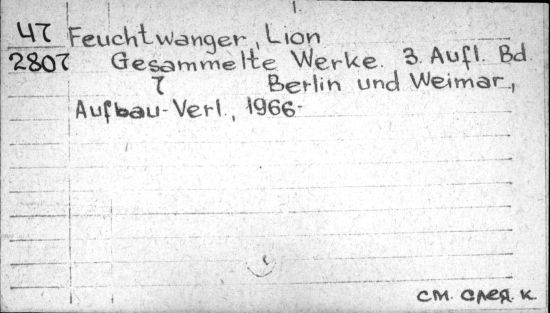 1.
47 Feuchtwanger, Lion
2807 Gesammelte Werke. 3. Aufl. Bd.
7 Berlin und Weimar,
Aufbau-Verl., 1966-
см. след. к.